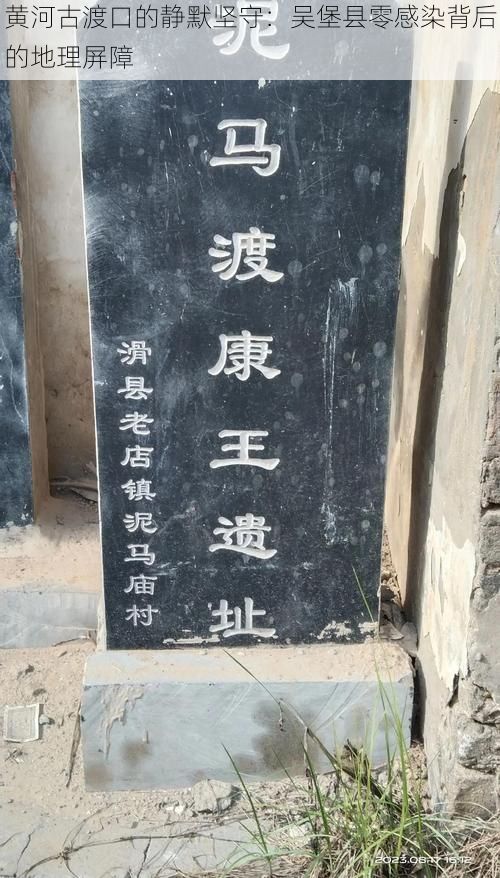 黄河古渡口的静默坚守：吴堡县零感染背后
的地理屏障
泥马渡康王遗址
滑县老店镇泥马庙村
2023.08.17 16:12